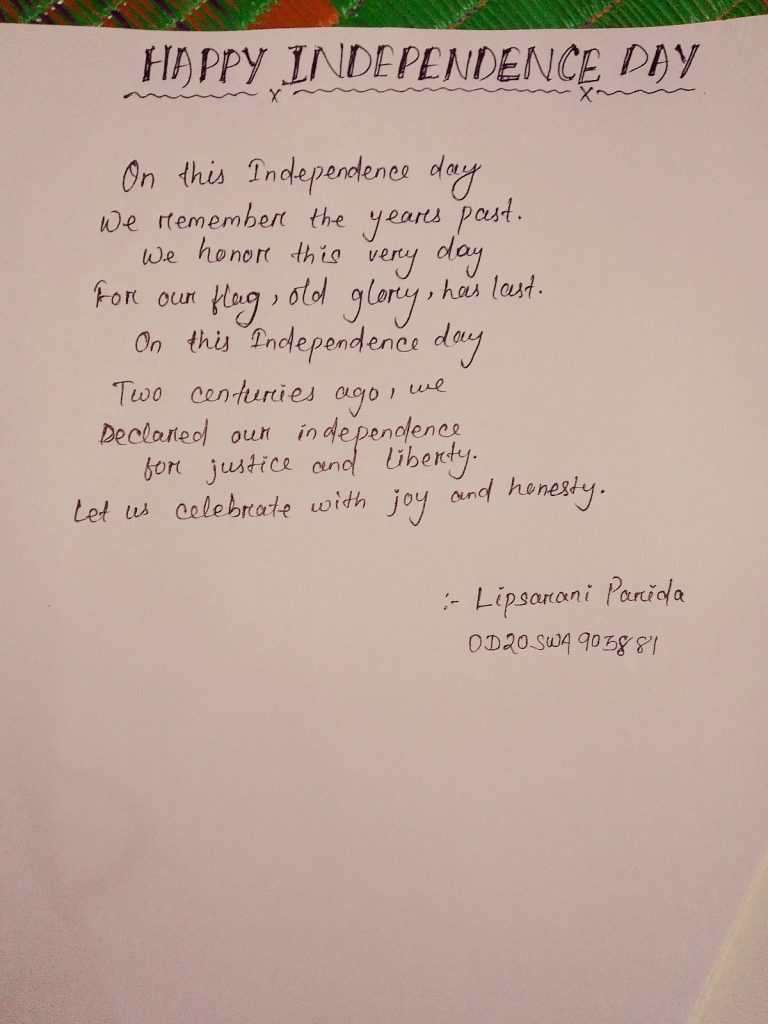 HAPPY INDEPENDENCE DAY
On this Independence day
We remember the years past.
We honor this very day
For our flag, old glory, has last.
On this Independence day
Two centuries ago, we
Declared our independence
for justice and liberty.
Let us celebrate with joy and honesty.
:- Lipsarani Parida
OD20SWA905881